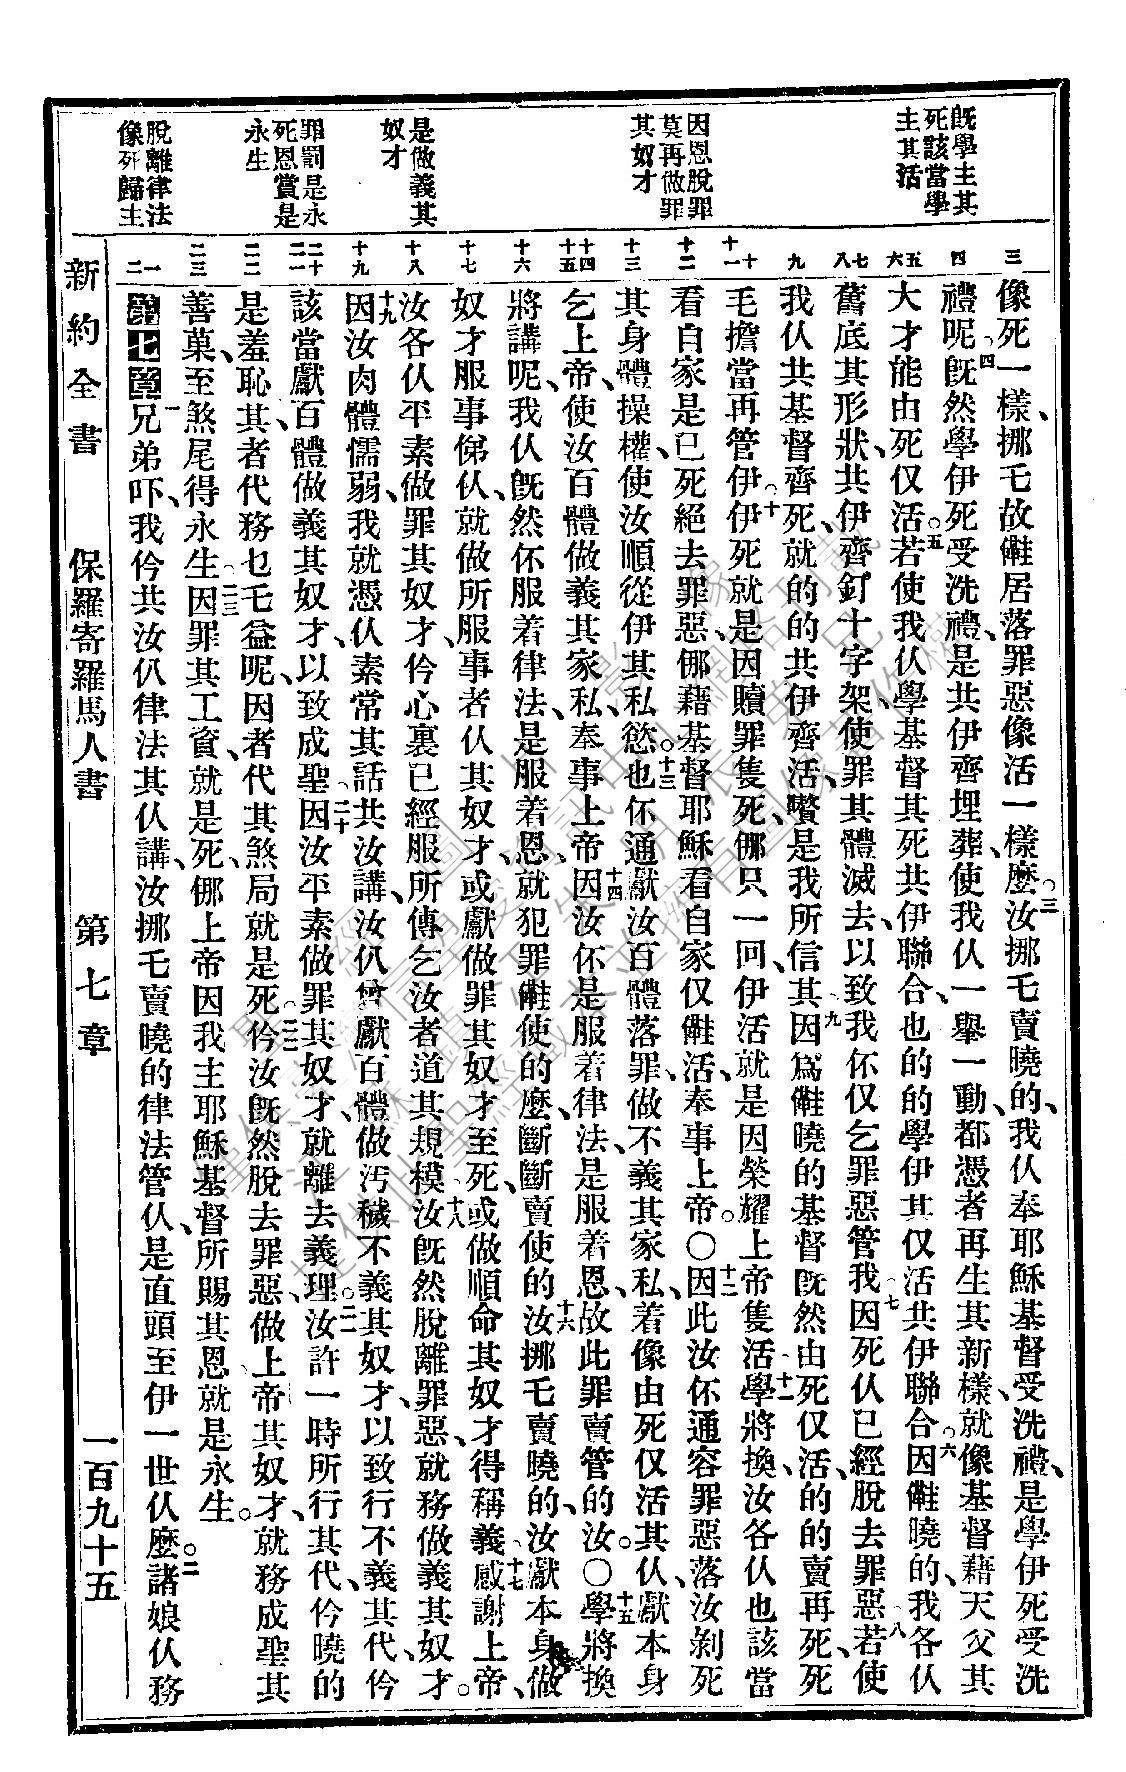 既學主其
死該當學
主其活
因恩脫罪
莫再做罪
其奴才
是做義其
奴才
罪罰是永
死恩賞是
永生
脫離律法
像死歸主
三
四
五 六
七 八
九
十 十一
十二
十三
十四 十五
十六
十七
十八
十九
二十 二一
二二
二三
一 二
像死一樣、挪乇故𣍐居落罪惡像活一樣麽。三汝挪乇賣曉的、我仈奉耶穌基督受洗禮、是學伊死受洗
禮呢。四旣然學伊死受洗禮、是共伊齊埋葬、使我仈一舉一動、都憑者再生其新樣、就像基督藉天父其
大才能由死仅活。五若使我仈學基督其死共伊聯合、也的的學伊其仅活共伊聯合。六因𣍐曉的、我各仈
舊底其形狀、共伊齊釘十字架、使罪其體滅去、以致我伓仅乞罪惡管我。七因死仈已經脫去罪惡。八若使
我仈共基督齊死、就的的共伊齊活、嚽是我所信其。九因爲𣍐曉的基督旣然由死仅活、的的賣再死、死
乇擔當再管伊。十伊死就是因贖罪隻死、㑚只一回、伊活、就是因榮耀上帝隻活。十一學將換、汝各仈也該當
看自家是已死絕去罪惡、㑚藉基督耶穌看自家仅𣍐活、奉事上帝。〇十二因此汝伓通容罪惡落汝剝死
其身體操權、使汝順從伊其私慾。十三也伓通獻汝百體落罪、做不義其家私、着像由死仅活其仈、獻本身
乞上帝、使汝百體做義其家私、奉事上帝。十四因汝伓是服着律法、是服着恩、故此罪賣管的汝。〇十五學將換
將講呢、我仈旣然伓服着律法、是服着恩、就犯罪𣍐使的麽、斷斷賣使的。十六汝挪乇賣曉的、汝獻本身做
奴才服事㑚仈、就做所服事者仈其奴才、或獻做罪其奴才至死、或做順命其奴才得稱義。十七感謝上帝、
汝各仈平素做罪其奴才、仱心裏已經服所傳乞汝者道其規模。十八汝旣然脫離罪惡、就務做義其奴才。
十九因汝肉體懦弱、我就憑仈素常其話共汝講、汝仈曾獻百體做汚穢不義其奴才、以致行不義其代、仱
該當獻百體做義其奴才、以致成聖。二十因汝平素做罪其奴才、就離去義理。二一汝許一時所行其代、仱曉的
是羞恥其者代、務乜乇益呢、因者代其煞局就是死。二二仱汝旣然脫去罪惡、做上帝其奴才、就務成聖其
善菓、至煞尾得永生。二三因罪其工資、就是死、㑚上帝因我主耶穌基督所賜其恩、就是永生。
第七章 一兄弟吓、我仱共汝仈律法其仈講、汝挪乇賣曉的律法管仈、是直頭至伊一世仈麽。二諸娘仈務
新約全書 保羅寄羅馬人書 第七章 一百九十五